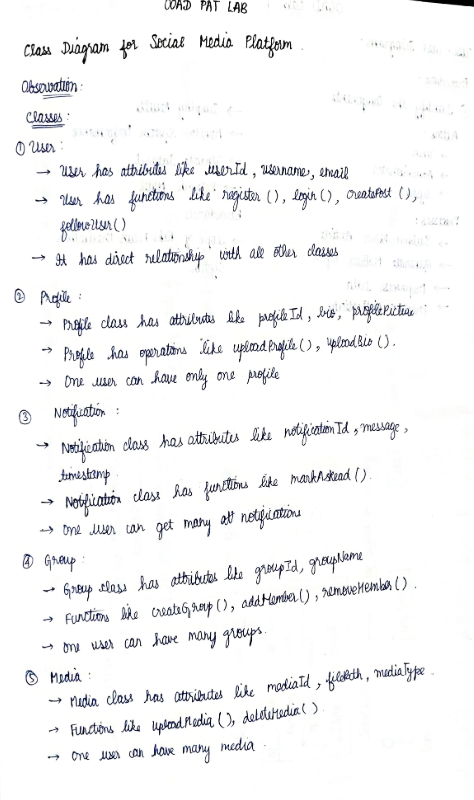 OOAD PAT LAB
Class Diagram for Social Media Platform.
Observation:
Classes:
① User:
→ User has attributes like userId, username, email
→ User has functions like register(), login(), createPost(),
followUser()
→ It has direct relationship with all other classes
② Profile:
→ Profile class has attributes like profileId, bio, profilePicture
→ Profile has operations like uploadProfile(), uploadBio().
→ One user can have only one profile
③ Notification:
→ Notification class has attributes like notificationId, message,
timestamp.
→ Notification class has functions like markAsRead().
→ One user can get many notifications
④ Group:
→ Group class has attributes like groupId, groupName
→ Functions like createGroup(), addMember(), removeMember().
→ One user can have many groups.
⑤ Media:
→ Media class has attributes like mediaId, filePath, mediaType.
→ Functions like uploadMedia(), deleteMedia().
→ One user can have many media.